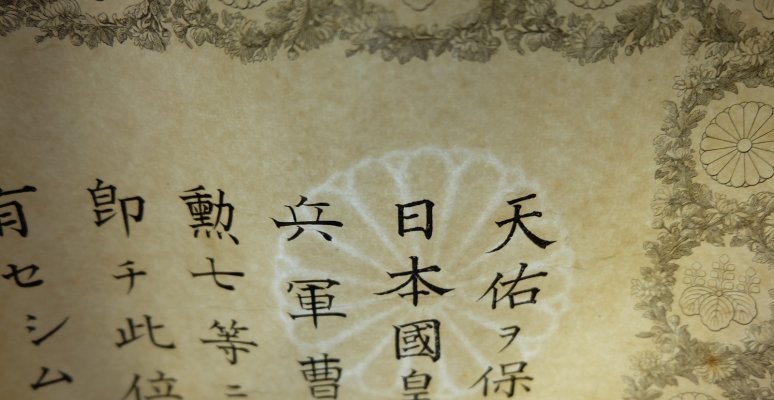 天佑ヲ保
日本國皇
兵軍曹
勲七等ニ
即チ此位
有セシム